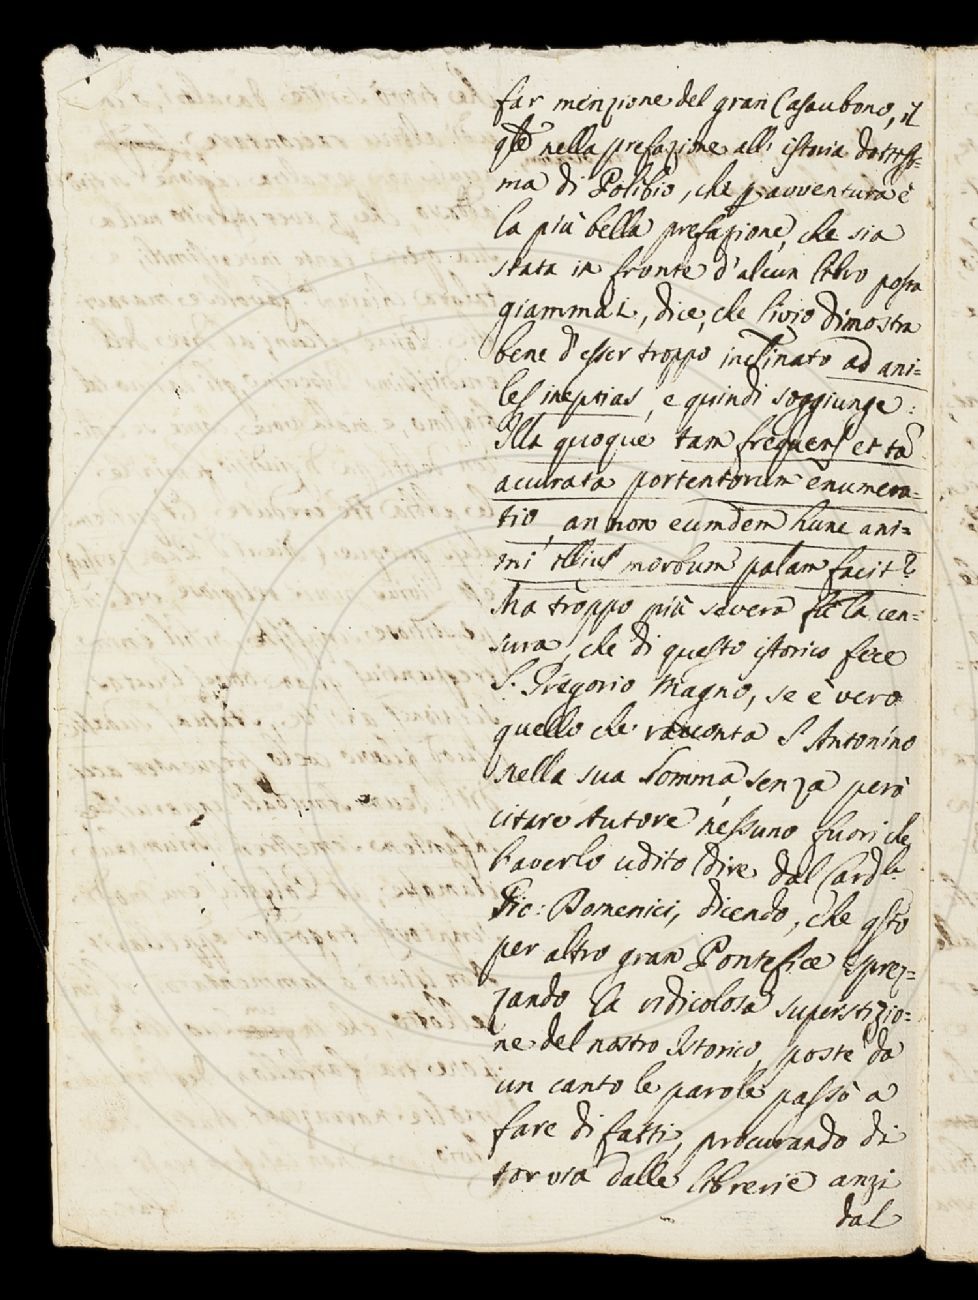 far menzione del gran Casaubono, il
qle nella prefazione all' istoria dottissi-
ma di Polibio, che p avventura è
la più bella prefazione, che sia
stata in fronte d'alcun libro posta
giammai, dice, che Livio dimostra
bene d'esser troppo inclinato ad ani=
les ineptias, e quindi soggiunge:
Illa quoque tam frequens et tã
accurata portentorum enumera-
tio, an non eumdem hunc ani=
mi illius morbum palam facit?
Ma troppo più severa fù la cen=
sura, che di questo istorico fece
S. Gregorio Magno, se è vero
quello che racconta S. Antonino
nella sua Somma, senza però
citare Autore nessuno fuori che
haverlo udito dire dal Card.le
Gio: Domenici, dicendo, che qsto
per altro gran Pontefice sprez=
zando la ridicolosa superstizio=
ne del nostro Istorico, poste da
un canto le parole passò a
fare di fatti, procurando di
tor via dalle librerie anzi
dal